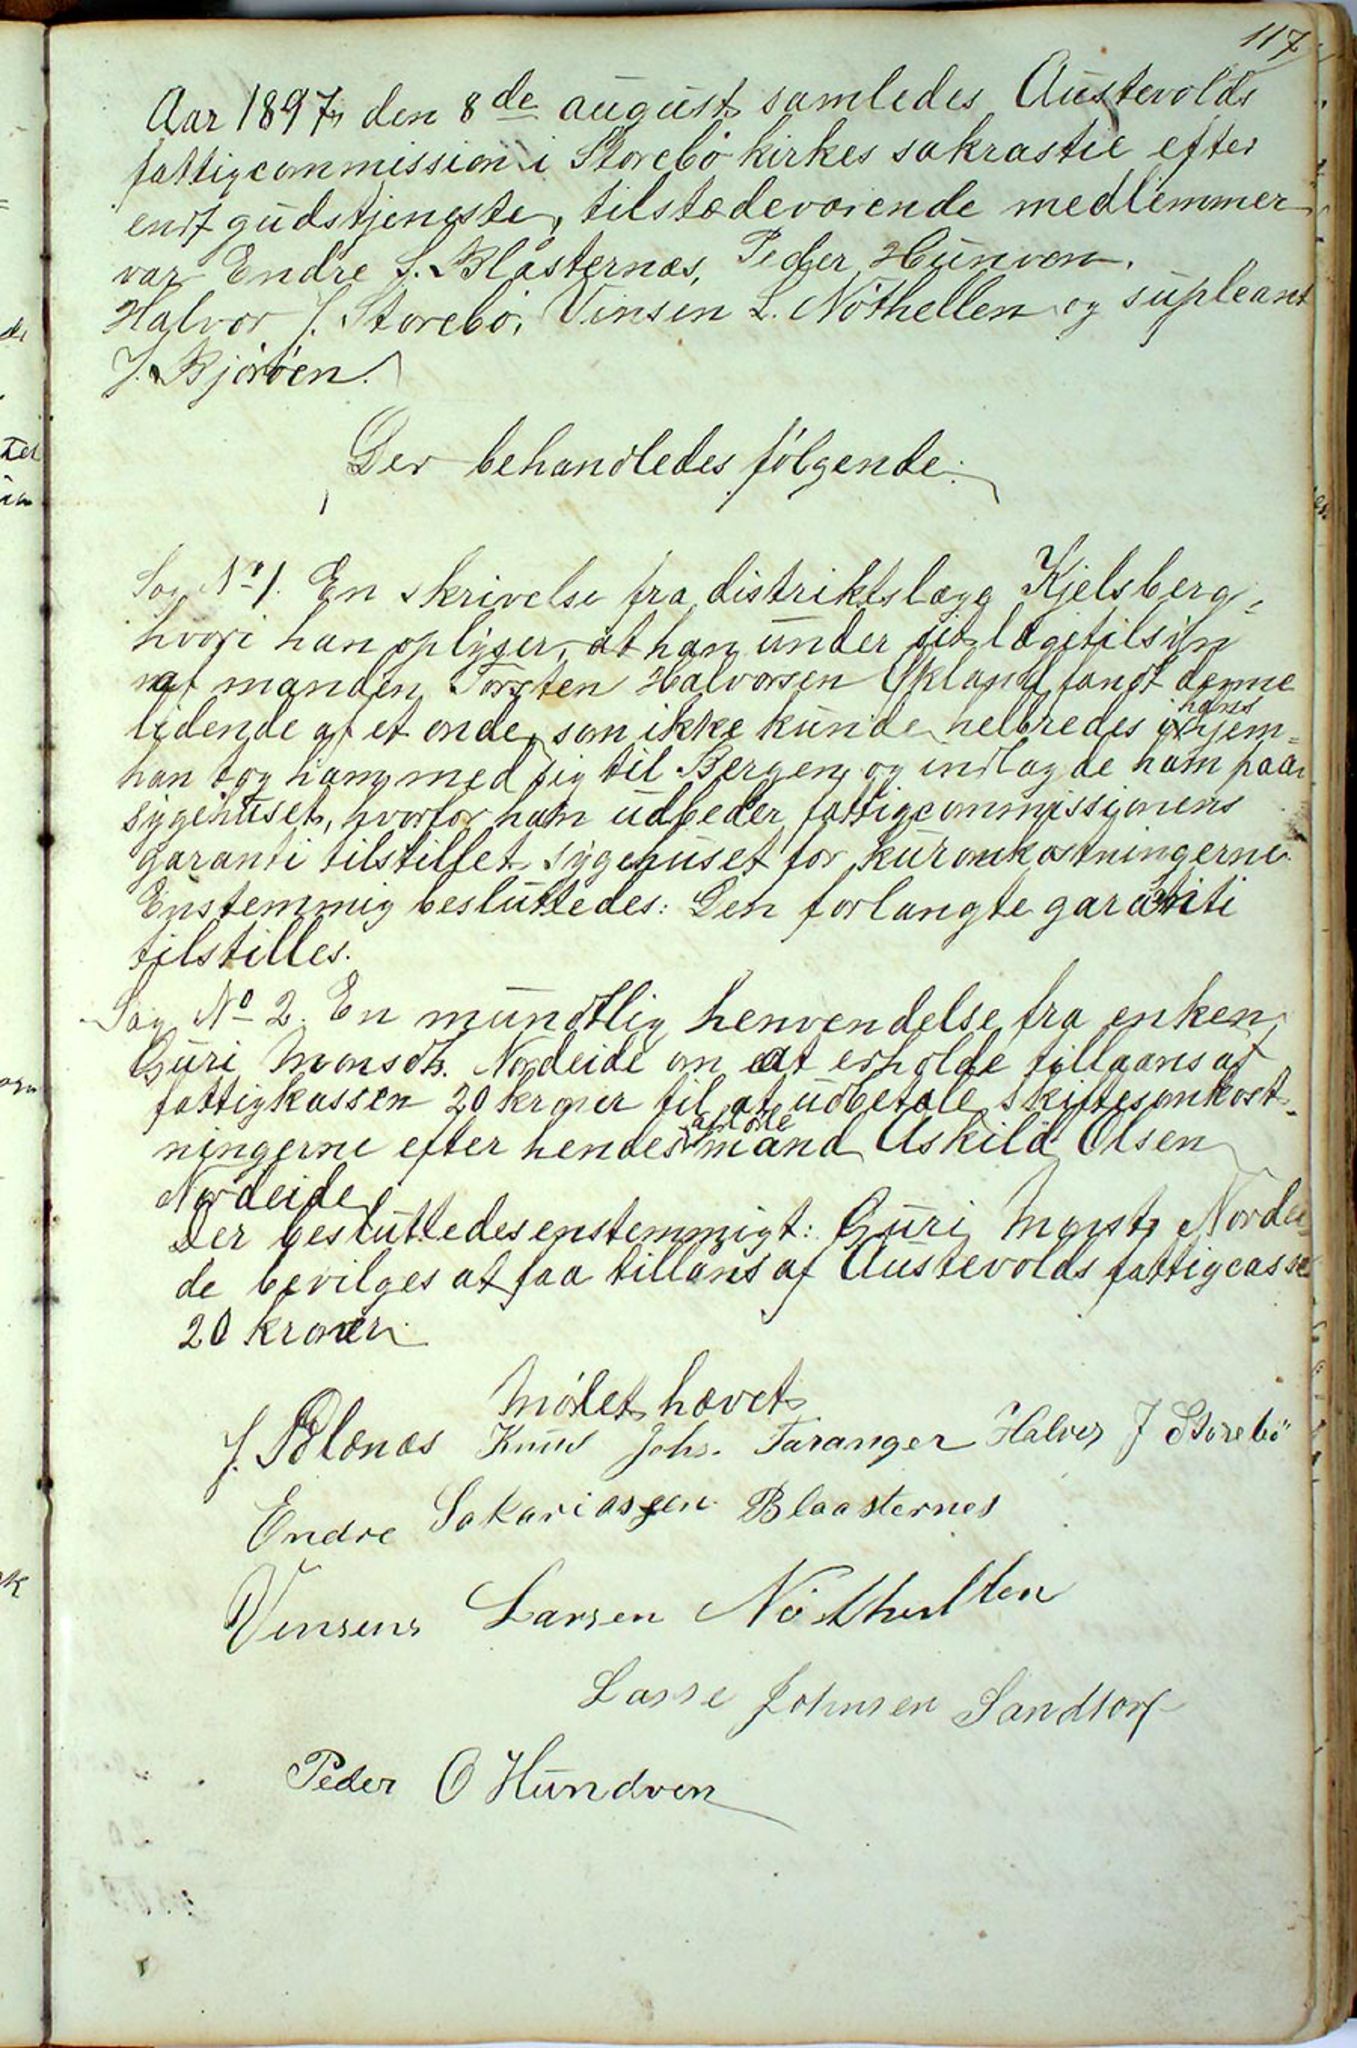 117
Aar 1897, den 8de august samledes Austevolds
fattigcommission i Storebö kirkes sakrastie efter
endt gudstjeneste, tilstædeværende medlemmer
var Endre S. Blåsternæs, Peder Hunven.
Halvor J. Storebö, Vinsen L. Nöthellen og supleant
J. Björöen.
Der behandledes følgende:
Sag No 1. En skrivelse fra distriktslæge Kjelsberg,
hvori han oplyser, at han under sit lægetilsin
af manden Torsten Halvorsen Økland fandt denne
lidende af et onde, som ikke kunde helbredes i hans hjem=
han tog ham med sig til Bergen og indlagde ham paa
sygehuset, hvorfor han udbeder fattigcommissionens
garanti tilstillet sygehuset for kuromkostningerne.
Enstemmig besluttedes: Den forlangte garanti
tilstilles.
Sag No 2. En mundtlig henvendelse fra enken
Guri Monsdtr. Nordeide om at erholde tillaans af
fattigkassen 20 kroner til at udbetale skiftesomkost-
ningerne efter hendes afdöde mand Askild Olsen
Nordeide
Der besluttedes enstemmigt: Guri Monsdtr Nordei-
de bevilges at faa tillåns af Austevolds fattigcasse
20 kroner.
Mødet hævet
J. Blænæs Knud Johs. Taranger Halvor J Storebö
Endre Sakariassen Blaasternes
Vinsens Larsen Nöthellen
Lasse Johnsen Sandtorf
Peder O Hundven